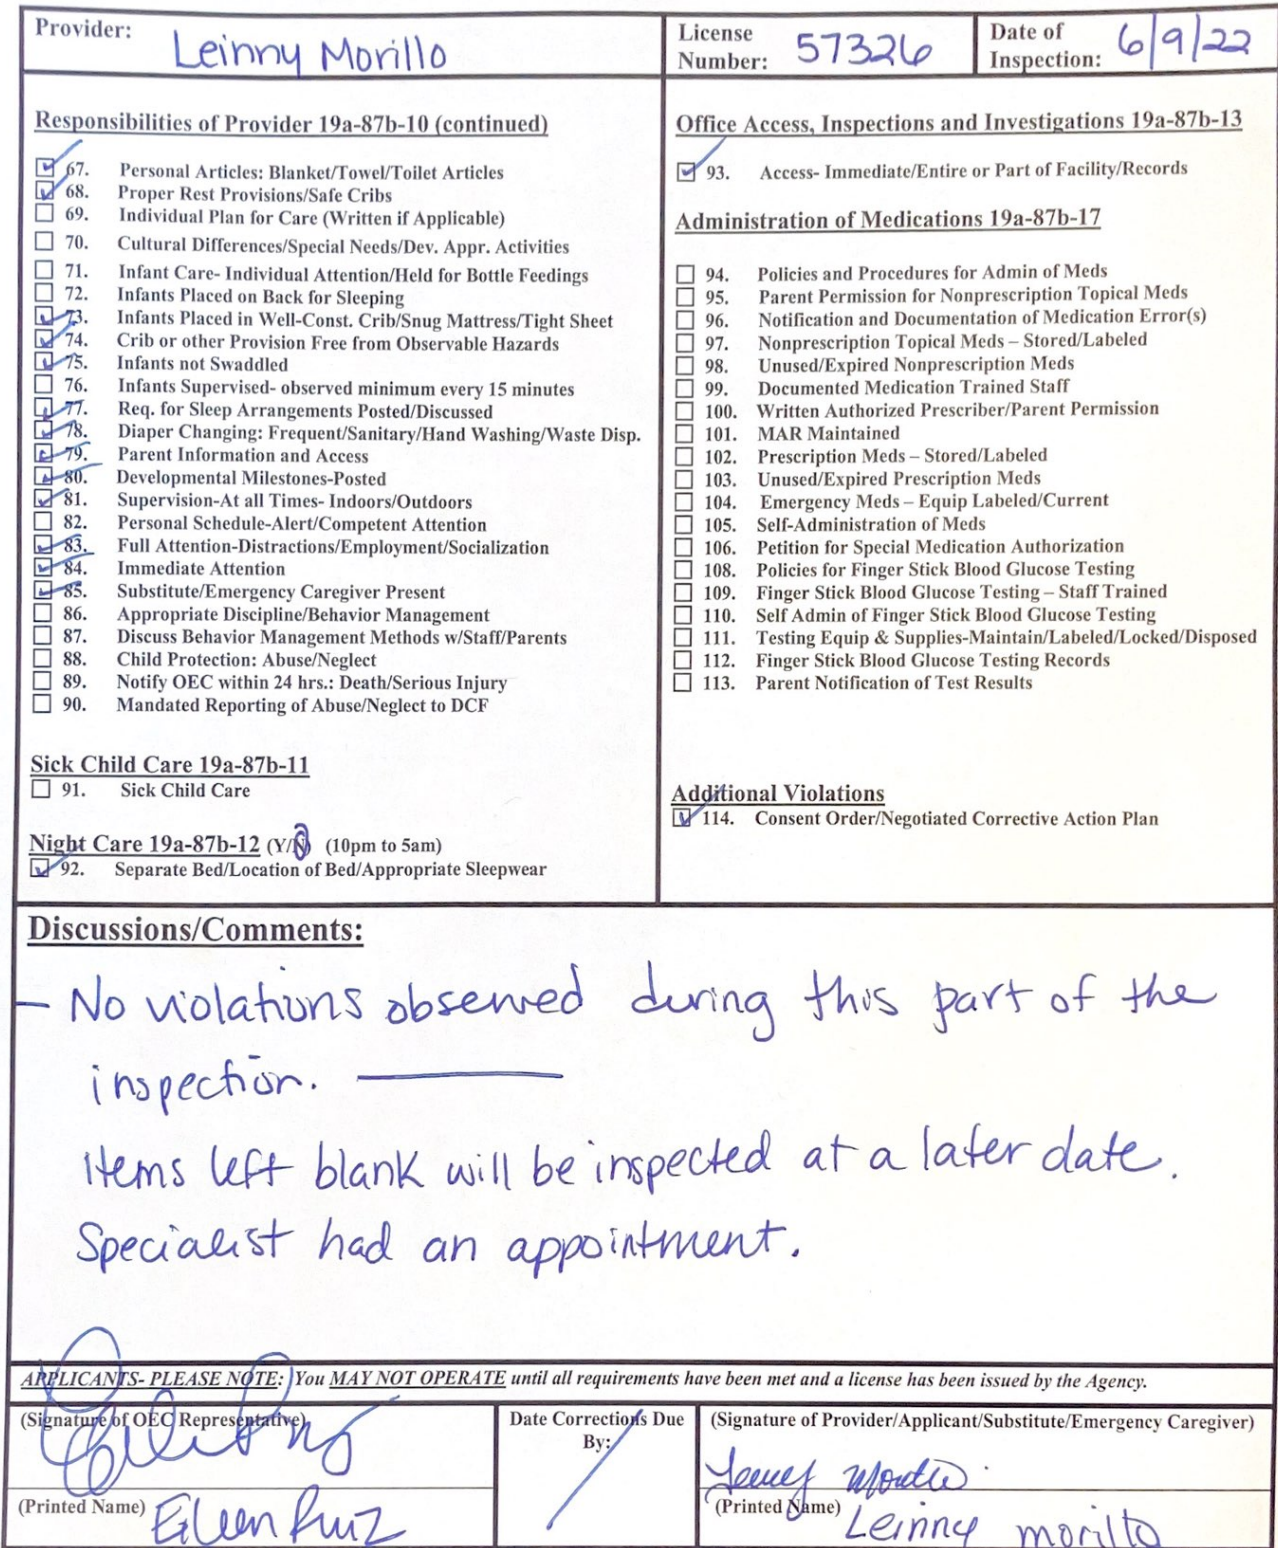 Provider: Leinny Morillo
License Number: 57326
Date of Inspection: 6/9/22
Responsibilities of Provider 19a-87b-10 (continued)
☑ 67. Personal Articles: Blanket/Towel/Toilet Articles
☑ 68. Proper Rest Provisions/Safe Cribs
☐ 69. Individual Plan for Care (Written if Applicable)
☐ 70. Cultural Differences/Special Needs/Dev. Appr. Activities
☐ 71. Infant Care- Individual Attention/Held for Bottle Feedings
☐ 72. Infants Placed on Back for Sleeping
☑ 73. Infants Placed in Well-Const. Crib/Snug Mattress/Tight Sheet
☑ 74. Crib or other Provision Free from Observable Hazards
☑ 75. Infants not Swaddled
☐ 76. Infants Supervised- observed minimum every 15 minutes
☑ 77. Req. for Sleep Arrangements Posted/Discussed
☑ 78. Diaper Changing: Frequent/Sanitary/Hand Washing/Waste Disp.
☑ 79. Parent Information and Access
☑ 80. Developmental Milestones-Posted
☑ 81. Supervision-At all Times- Indoors/Outdoors
☐ 82. Personal Schedule-Alert/Competent Attention
☑ 83. Full Attention-Distractions/Employment/Socialization
☑ 84. Immediate Attention
☑ 85. Substitute/Emergency Caregiver Present
☐ 86. Appropriate Discipline/Behavior Management
☐ 87. Discuss Behavior Management Methods w/Staff/Parents
☐ 88. Child Protection: Abuse/Neglect
☐ 89. Notify OEC within 24 hrs.: Death/Serious Injury
☐ 90. Mandated Reporting of Abuse/Neglect to DCF
Sick Child Care 19a-87b-11
☐ 91. Sick Child Care
Night Care 19a-87b-12 (Y/N) (10pm to 5am)
☑ 92. Separate Bed/Location of Bed/Appropriate Sleepwear
Office Access, Inspections and Investigations 19a-87b-13
☑ 93. Access- Immediate/Entire or Part of Facility/Records
Administration of Medications 19a-87b-17
☐ 94. Policies and Procedures for Admin of Meds
☐ 95. Parent Permission for Nonprescription Topical Meds
☐ 96. Notification and Documentation of Medication Error(s)
☐ 97. Nonprescription Topical Meds – Stored/Labeled
☐ 98. Unused/Expired Nonprescription Meds
☐ 99. Documented Medication Trained Staff
☐ 100. Written Authorized Prescriber/Parent Permission
☐ 101. MAR Maintained
☐ 102. Prescription Meds – Stored/Labeled
☐ 103. Unused/Expired Prescription Meds
☐ 104. Emergency Meds – Equip Labeled/Current
☐ 105. Self-Administration of Meds
☐ 106. Petition for Special Medication Authorization
☐ 108. Policies for Finger Stick Blood Glucose Testing
☐ 109. Finger Stick Blood Glucose Testing – Staff Trained
☐ 110. Self Admin of Finger Stick Blood Glucose Testing
☐ 111. Testing Equip & Supplies-Maintain/Labeled/Locked/Disposed
☐ 112. Finger Stick Blood Glucose Testing Records
☐ 113. Parent Notification of Test Results
Additional Violations
☑ 114. Consent Order/Negotiated Corrective Action Plan
Discussions/Comments:
- No violations observed during this part of the
inspection.
Items left blank will be inspected at a later date.
Specialist had an appointment.
APPLICANTS- PLEASE NOTE: You MAY NOT OPERATE until all requirements have been met and a license has been issued by the Agency.
(Signature of OEC Representative)
(Printed Name) Eileen Ruiz
Date Corrections Due
By: /
(Signature of Provider/Applicant/Substitute/Emergency Caregiver)
(Printed Name) Leinny morillo